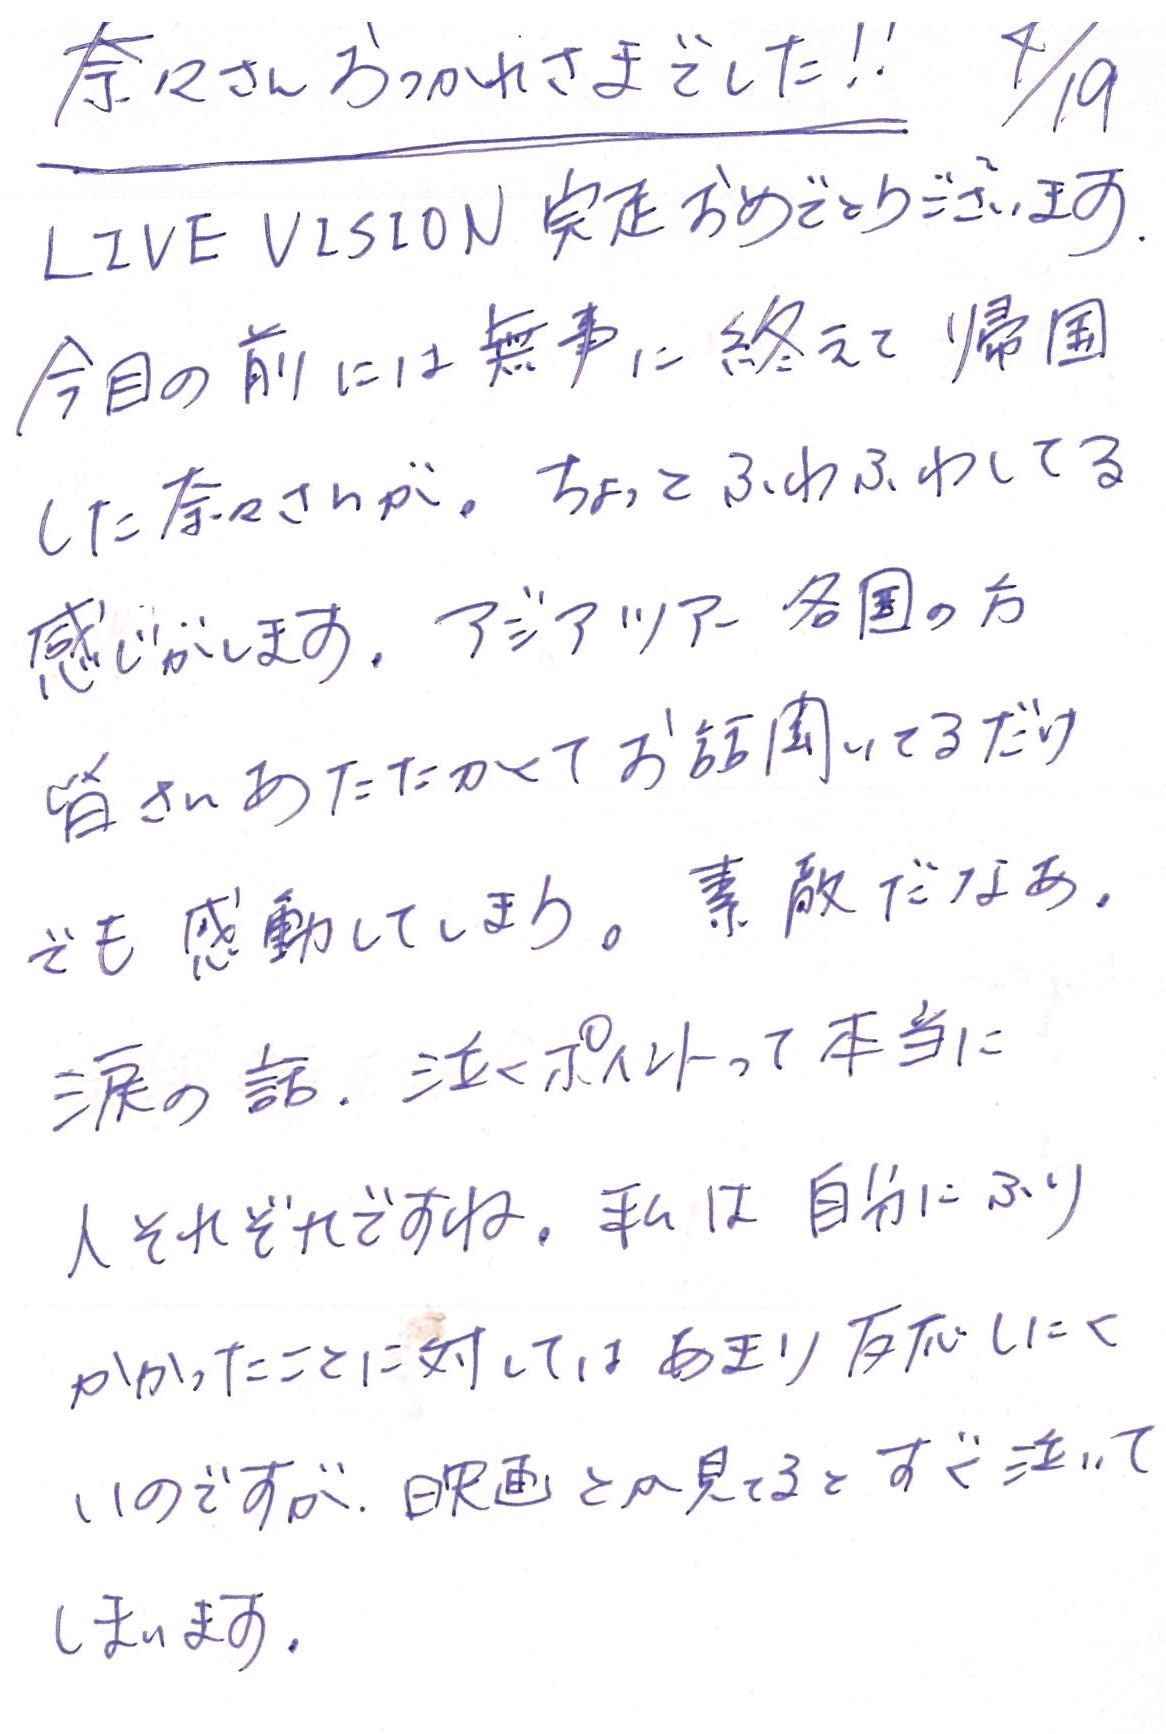 奈々さんおつかれさまでした!! 4/19
LIVE VISION 完走おめでとうございます.
今目の前には無事に終えて帰国
した奈々さんが。ちょっとふわふわしてる
感じがします。アジアツアー各国の方
皆さんあたたかくてお話聞いてるだけ
でも感動してしまう。素敵だなあ。
涙の話.泣くポイントって本当に
人それぞれですね。私は自分にふり
かかったことに対してはあまり反応しにく
いのですが.映画とか見てるとすぐ泣いて
しまいます。